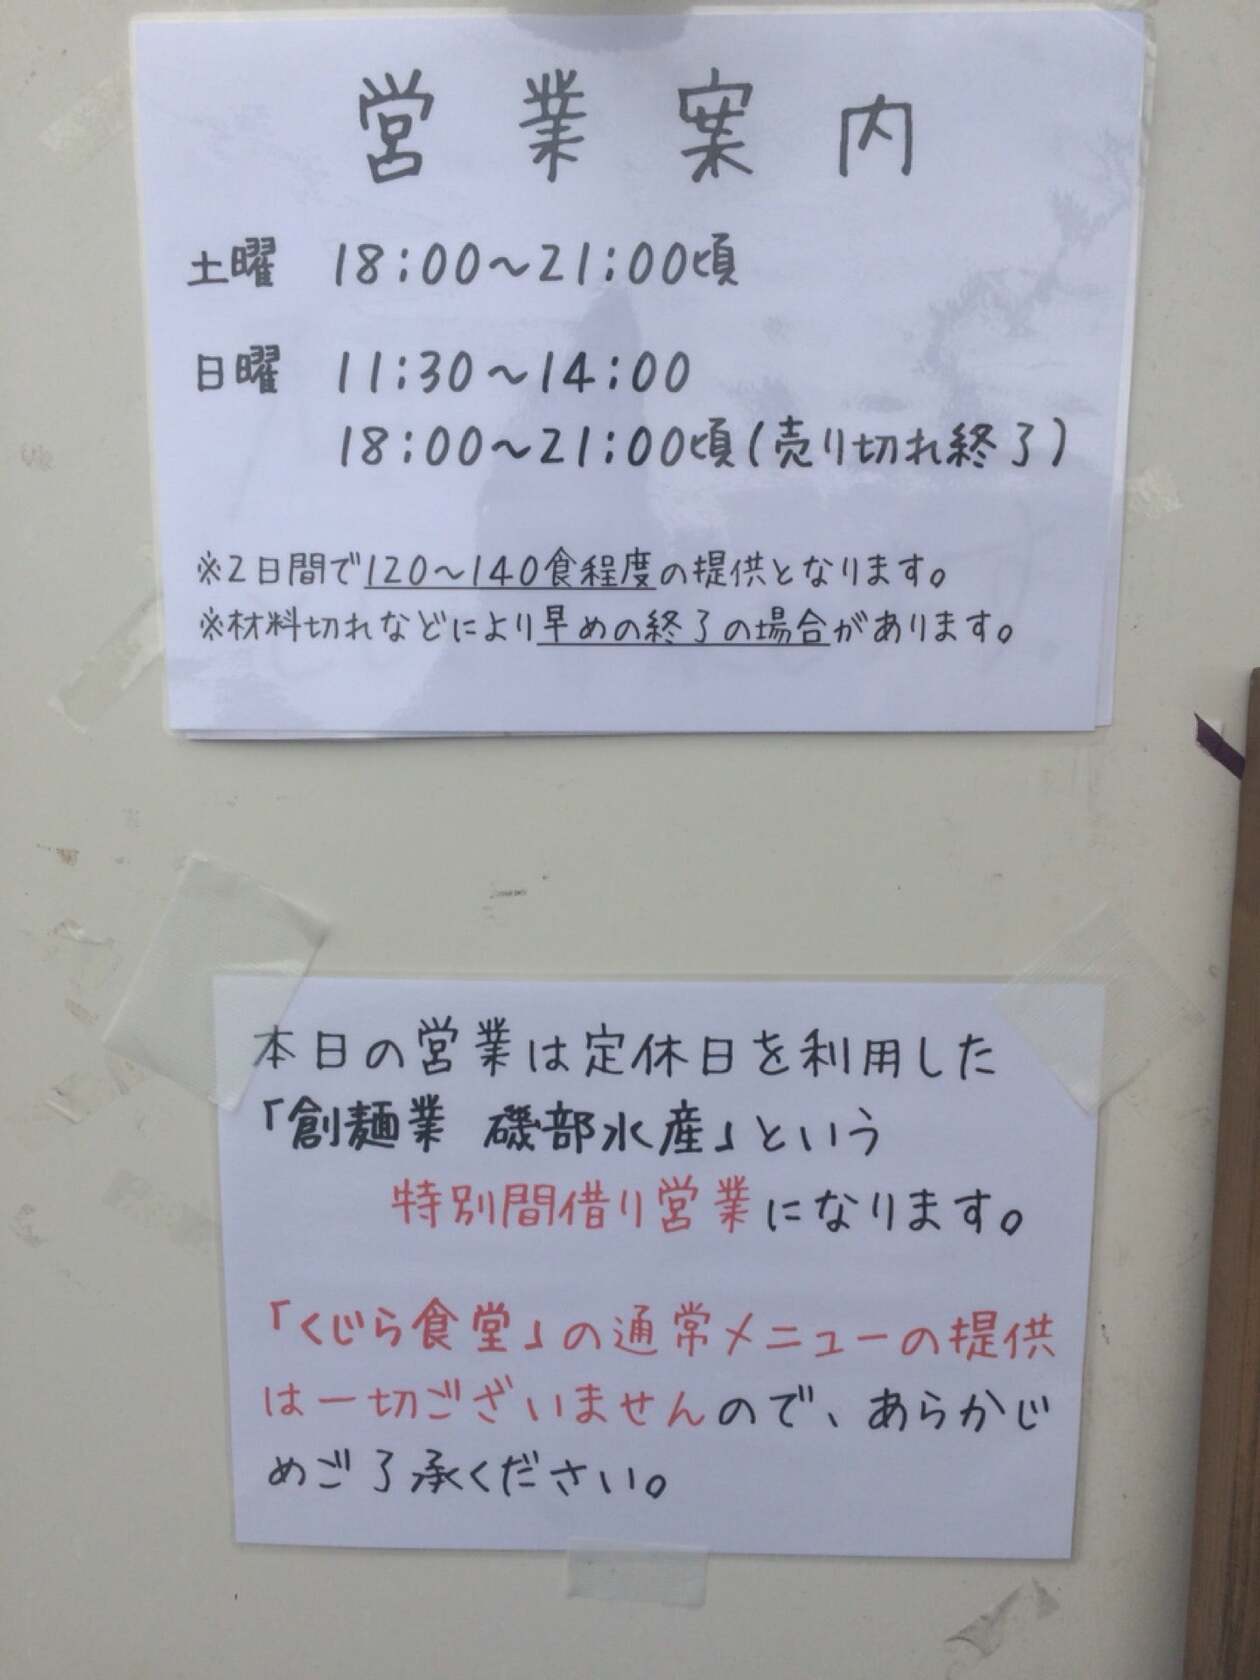 営業案内
土曜 18:00～21:00頃
日曜 11:30～14:00
18:00～21:00頃(売り切れ終了)
※2日間で120～140食程度の提供となります。
※材料切れなどにより早めの終了の場合があります。
本日の営業は定休日を利用した
「創麺業 磯部水産」という
特別間借り営業になります。
「くじら食堂」の通常メニューの提供
は一切ございませんので、あらかじ
めご了承ください。